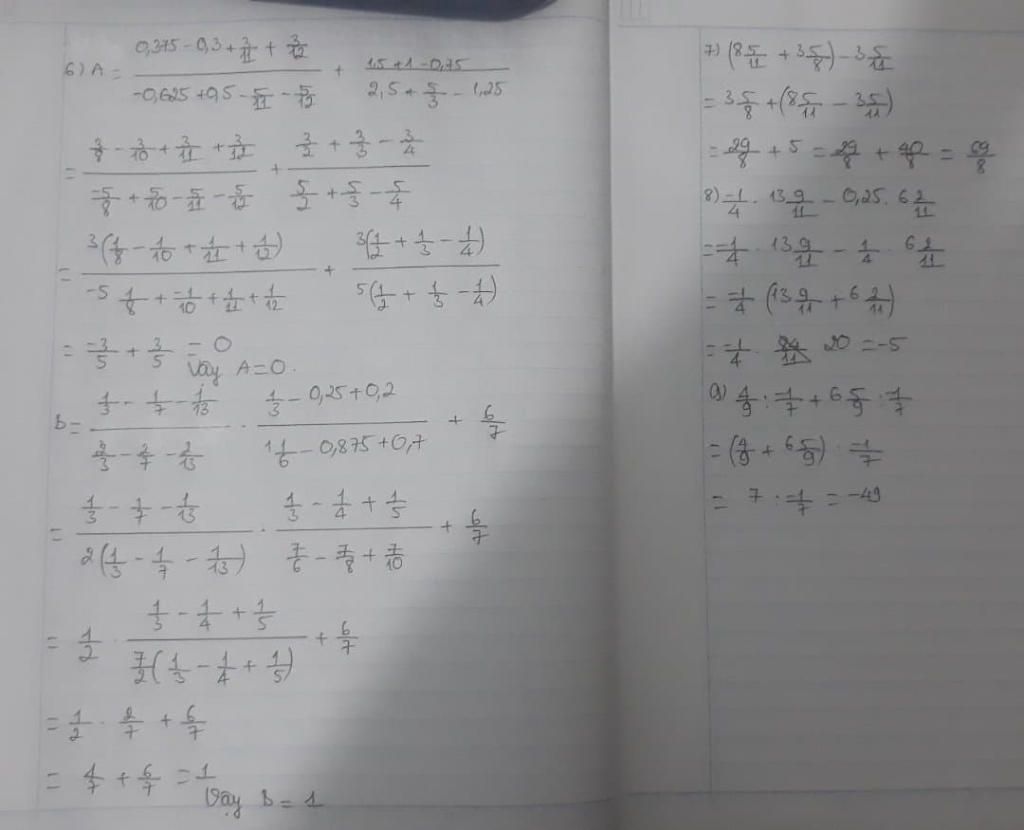 6) A = (0,375 - 0,3 + 3/11 + 3/12)/(-0,625 + 0,5 - 5/11 - 5/12) + (1,5 + 1 - 0,75)/(2,5 + 5/3 - 1,25)
= (3/8 - 3/10 + 3/11 + 3/12)/(-5/8 + 5/10 - 5/11 - 5/12) + (3/2 + 3/3 - 3/4)/(5/2 + 5/3 - 5/4)
= 3(1/8 - 1/10 + 1/11 + 1/12)/(-5 1/8 + -1/10 + 1/11 + 1/12) + 3(1/2 + 1/3 - 1/4)/5(1/2 + 1/3 - 1/4)
= -3/5 + 3/5 = 0
Vậy A = 0.
B = (1/3 - 1/7 - 1/13)/(2/3 - 2/7 - 2/13) . (1/3 - 0,25 + 0,2)/(1 1/6 - 0,875 + 0,7) + 6/7
= (1/3 - 1/7 - 1/13)/2(1/3 - 1/7 - 1/13) . (1/3 - 1/4 + 1/5)/(7/6 - 7/8 + 7/10) + 6/7
= 1/2 . (1/3 - 1/4 + 1/5)/(7/2(1/3 - 1/4 + 1/5)) + 6/7
= 1/2 . 2/7 + 6/7
= 1/7 + 6/7 = 1
Vậy B = 1
7) (8 5/11 + 3 5/8) - 3 5/11
= 3 5/8 + (8 5/11 - 3 5/11)
= 29/8 + 5 = 29/8 + 40/8 = 69/8
8) -1/4 . 13 9/11 - 0,25 . 6 2/11
= -1/4 . 13 9/11 - 1/4 . 6 2/11
= -1/4 (13 9/11 + 6 2/11)
= -1/4 . 20 = -5
9) 4/9 : -1/7 + 6 5/9 : -1/7
= (4/9 + 6 5/9) : -1/7
= 7 : -1/7 = -49